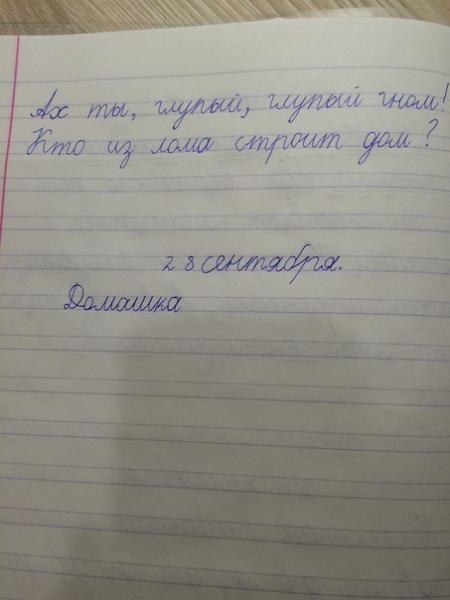 Ах ты, глупый, глупый гном!
Кто из лома строит дом?
28 сентября.
Домашка